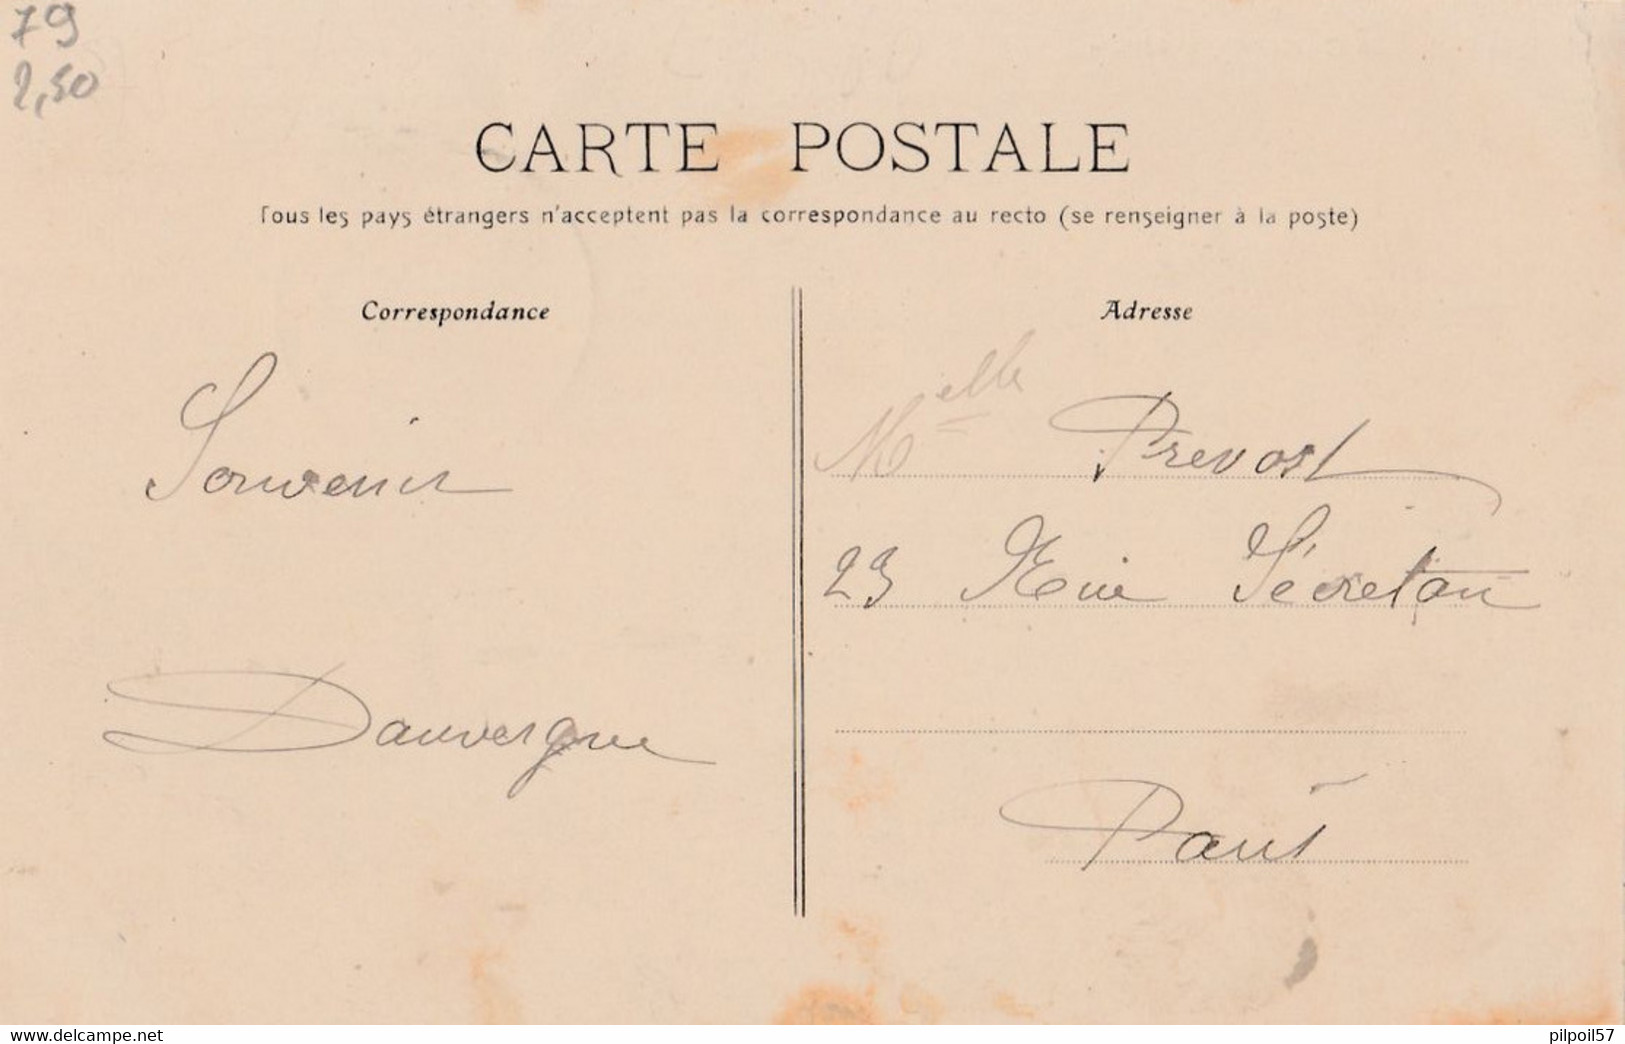 79
2,50
CARTE POSTALE
Tous les pays étrangers n'acceptent pas la correspondance au recto (se renseigner à la poste)
Correspondance
Adresse
Souvenir
Dauvergne
Melle Prevost
23 Rue Sécretan
Paris
www.delcampe.net
pilpoil57